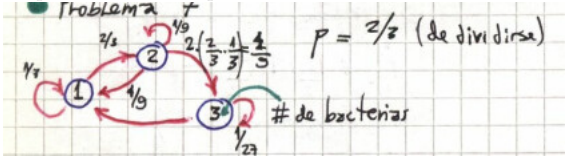 Problema 7
2/3
4/9
2·(2/3·1/3)=4/9
P = 2/3 (de dividirse)
2
1/3
1
1/9
3
# de bacterias
1/27